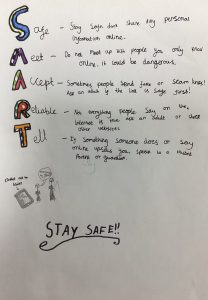 Safe - Stay Safe dont share any personal
information online.
Meet - Do not meet up with people you only know
online, it could be dangerous.
Accept - Sometimes people send fake or scam links!
Ask an adult if the link is safe first!
Reliable - Not everything people say on the
internet is true ask an adult or check
other websites
Tell - If something someone does or say
online upsets you, speak to a trusted
Parent or guardian
STAY SAFE!!